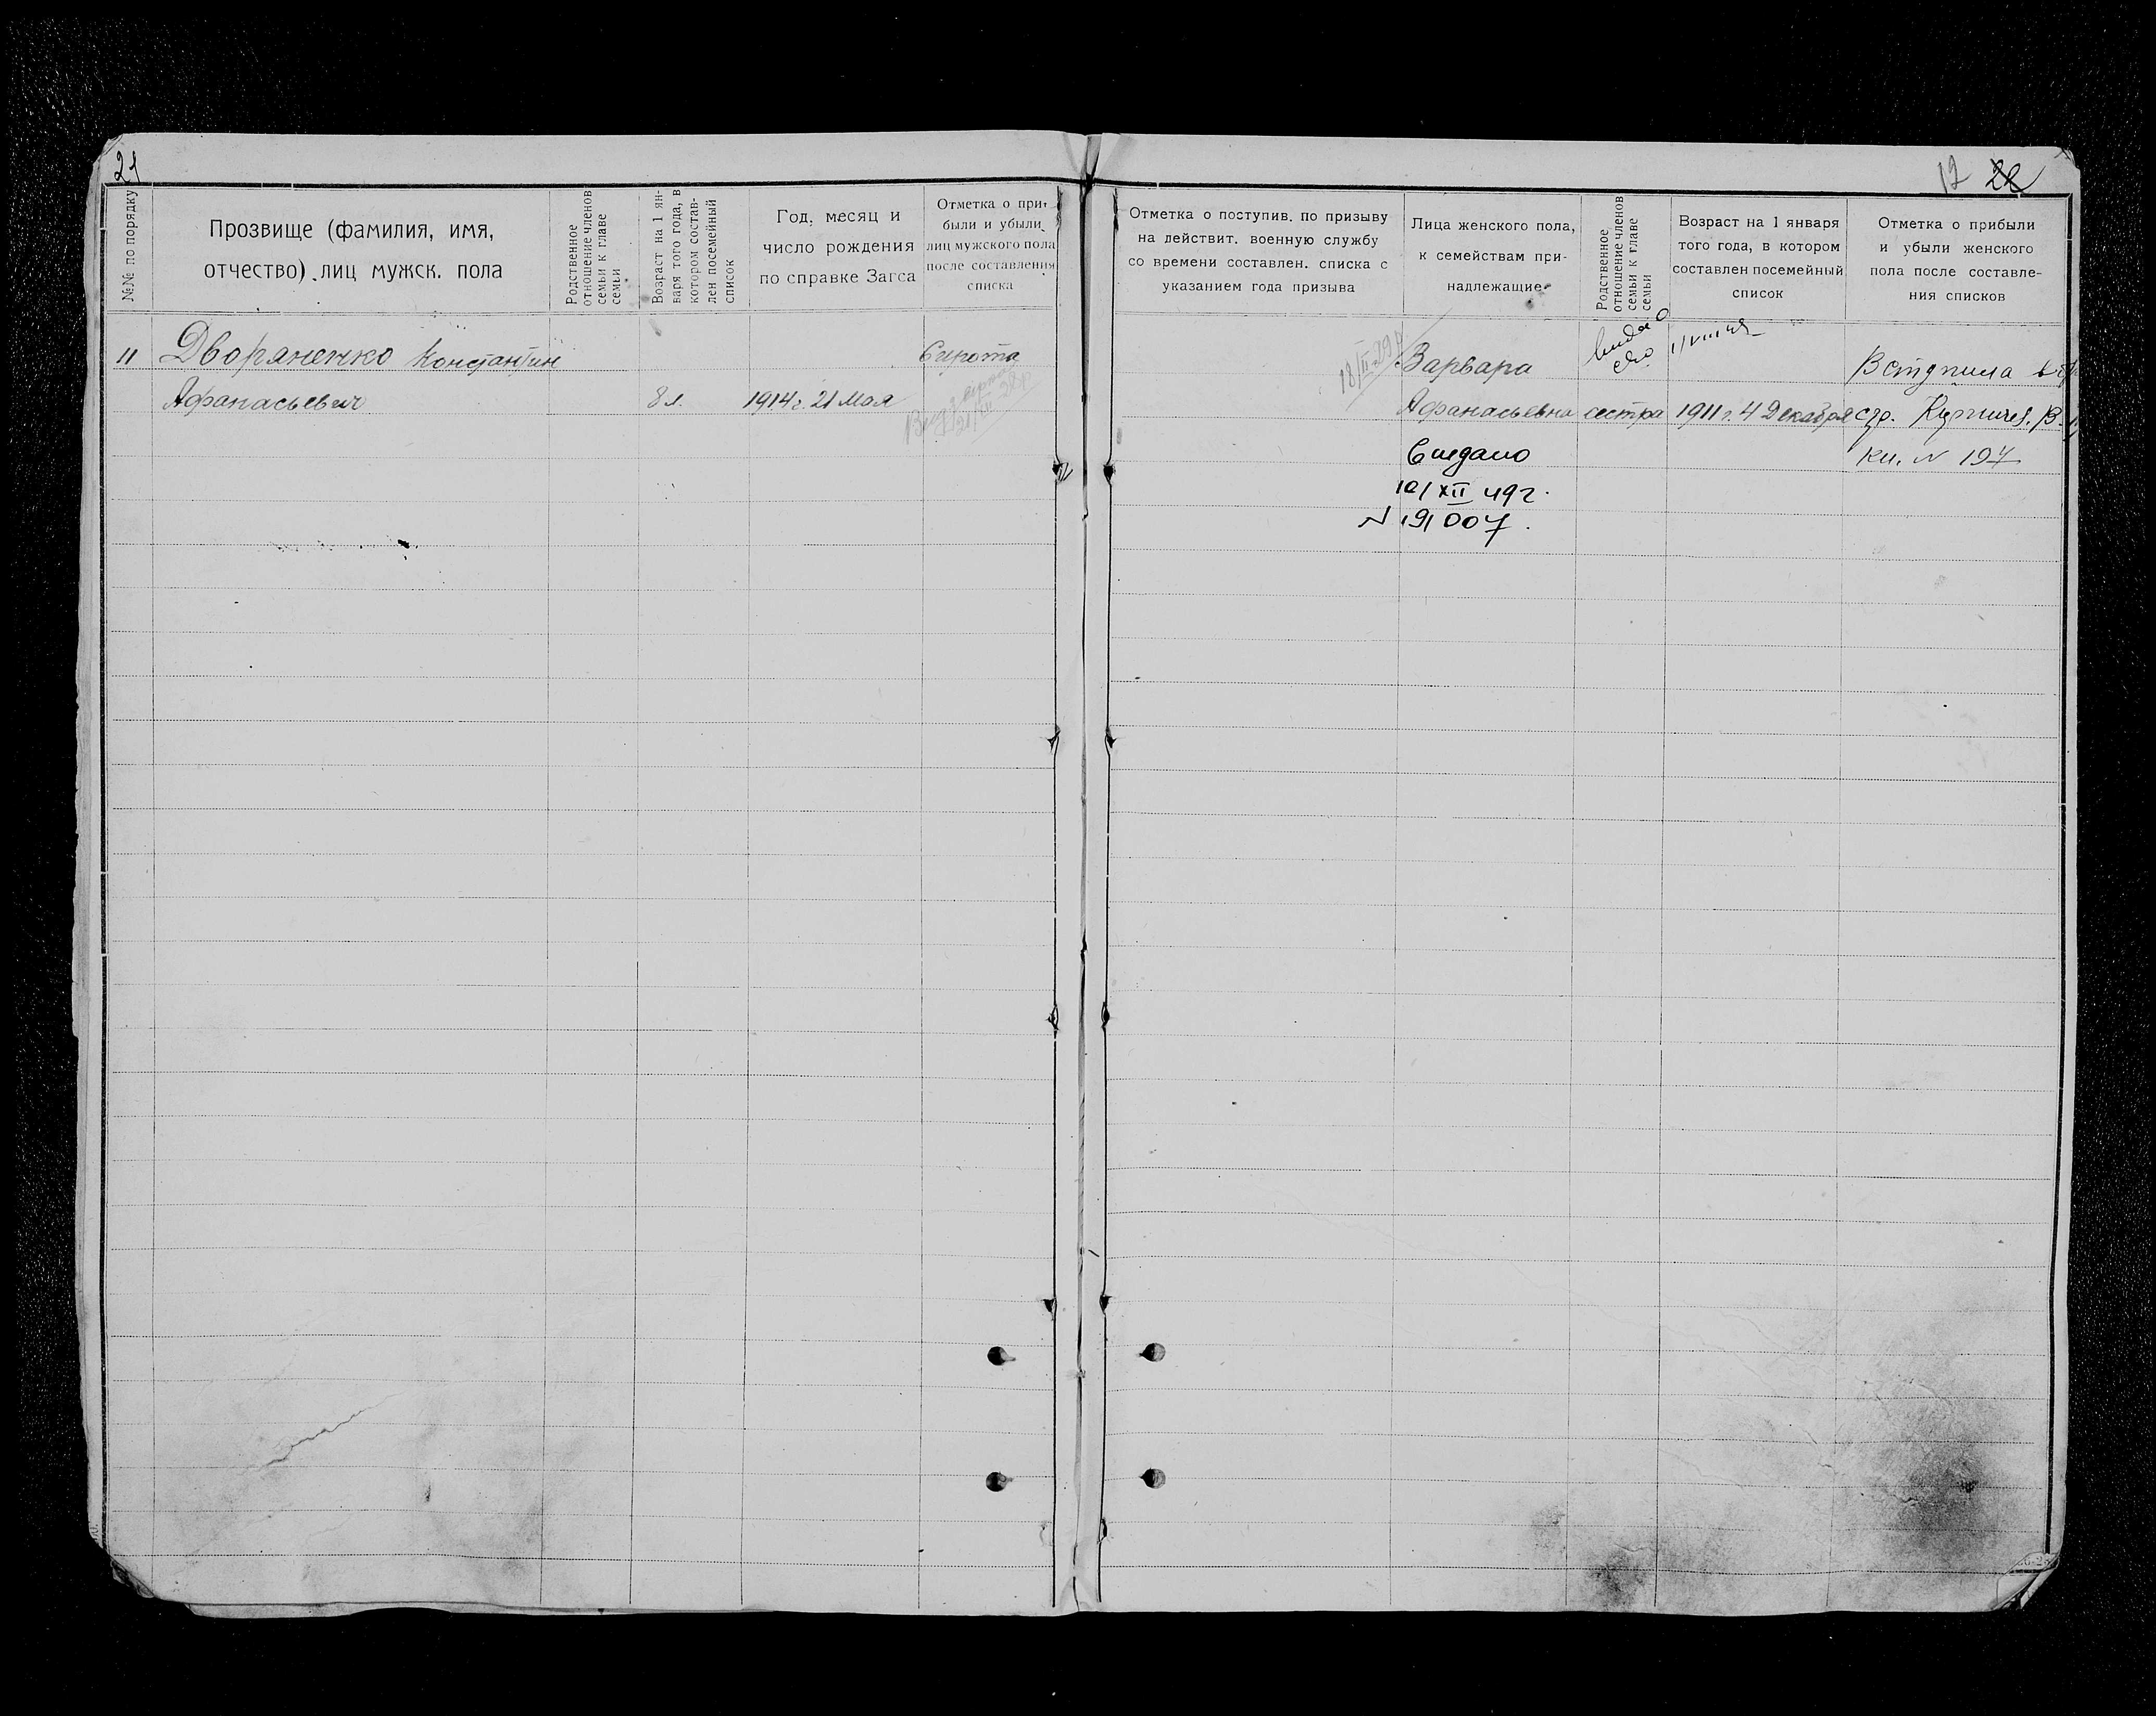 21
№№ по порядку
Прозвище (фамилия, имя,
отчество) лиц мужск. пола
Родственное
отношение членов
семьи к главе
семьи
Возраст на 1 ян-
варя того года, в
котором состав-
лен посемейный
список
Год, месяц и
число рождения
по справке Загса
Отметка о при-
были и убыли
лиц мужского пола
после составления
списка
11 Дворяненко Константин Сирота
Афанасьевич 8 л. 1914 г. 21 Мая
12 22
Отметка о поступив. по призыву
на действит. военную службу
со времени составлен. списка с
указанием года призыва
Лица женского пола,
к семействам при-
надлежащие
Родственное
отношение членов
семьи к главе
семьи
Возраст на 1 января
того года, в котором
составлен посемейный
список
Отметка о прибыли
и убыли женского
пола после составле-
ния списков
18/II 29 г
Варвара Вступила в
Афанасьевна сестра 1911 г. 4 Декабря
10/XII 49 г.
N 191007.
кн. N 197